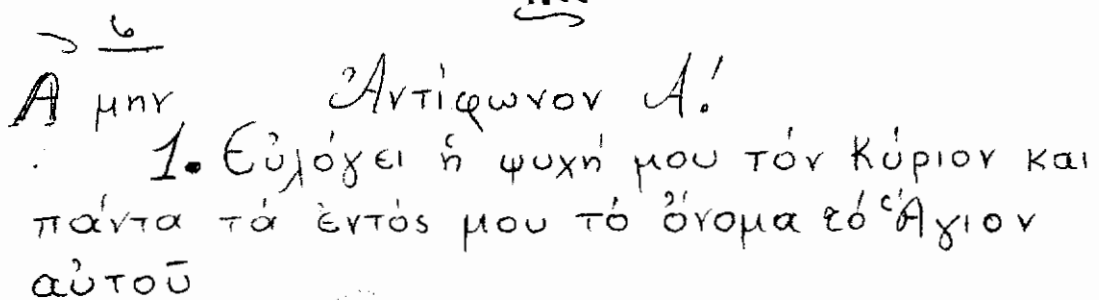 Α μην Ἀντίφωνον Α!
1. Εὐλόγει ἡ ψυχή μου τόν Κύριον και
πάντα τά ἐντός μου τό ὄνομα τό Ἅγιον
αὐτοῦ